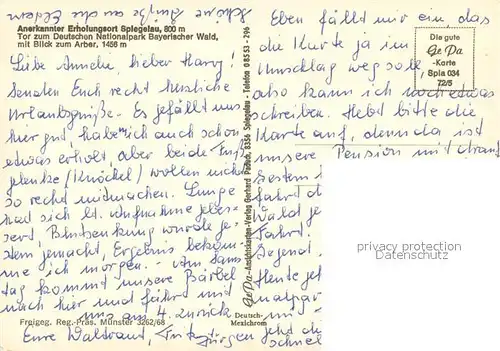 Schöne Grüße an die Eltern
Anerkannter Erholungsort Spiegelau, 800 m
Tor zum Deutschen Nationalpark Bayerischer Wald,
mit Blick zum Arber, 1456 m
Liebe Amelie, lieber Harry!
Senden Euch recht herzliche
Urlaubsgrüße. Es gefällt uns
hier gut, haben mich auch schon
etwas erholt, aber beide Fuß-
gelenke (Knöchel) wollen nicht
so recht mitmachen. Lunge
hat sich lt. Aufnahme gebes-
sert, Blutsenkung wurde ge-
stern gemacht, Ergebnis bekom-
me ich morgen. Am Sams
tag kommt unsere Bärbel
nach hier und fährt mit
uns am 4. zurück
Eure Waltraut,
Freigeg. Reg.-Präs. Münster 3262/68
GeDa-Ansichtskarten-Verlag Gerhard 8356 Spiegelau - Telefon 0 85 53 - 296
Deutsch-
Mexichrom
Eben fällt mir ein, das
die Karte ja im
Umschlag weg soll
also kann ich noch etwas
schreiben. Hebt bitte die
Karte auf, denn da ist
unsere Pension mit drauf
Gestern
fahrt d
Wald
Fahrt!
Gegend.
Heute
schnel
Die gute
GeDa
-Karte
Spia 034
72/5
privacy protection
Datenschutz